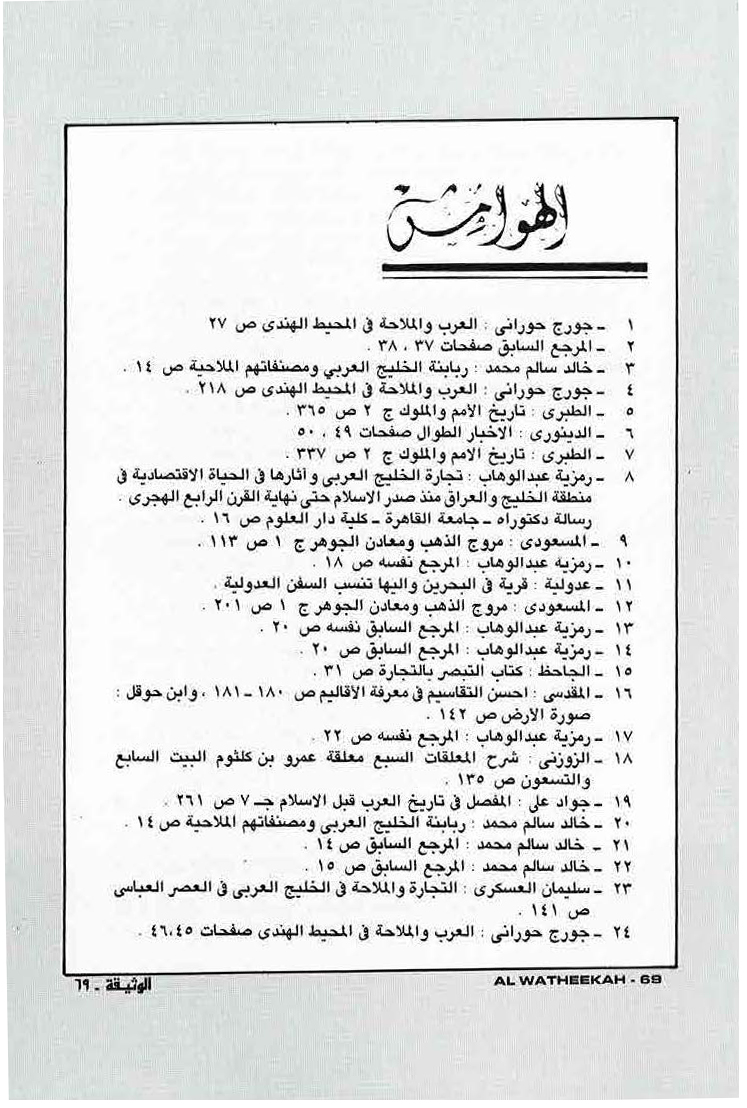 الهوامش
١ - جورج حورانى : العرب والملاحة في المحيط الهندى ص ٢٧
٢ - المرجع السابق صفحات ٣٧ ، ٣٨ .
٣ - خالد سالم محمد : ربابنة الخليج العربي ومصنفاتهم الملاحية ص ١٤ .
٤ - جورج حورانى : العرب والملاحة في المحيط الهندى ص ٢١٨ .
٥ - الطبرى : تاريخ الأمم والملوك ج ٢ ص ٣٦٥ .
٦ - الدينورى : الأخبار الطوال صفحات ٤٩ ، ٥٠
٧ - الطبرى : تاريخ الأمم والملوك ج ٢ ص ٣٣٧ .
٨ - رمزية عبدالوهاب : تجارة الخليج العربي و أثارها في الحياة الاقتصادية في
منطقة الخليج والعراق منذ صدر الاسلام حتى نهاية القرن الرابع الهجرى .
رسالة دكتوراه - جامعة القاهرة - كلية دار العلوم ص ١٦ .
٩ - المسعودى : مروج الذهب ومعادن الجوهر ج ١ ص ١١٣ .
١٠ - رمزية عبدالوهاب : المرجع نفسه ص ١٨ .
١١ - عدولية : قرية في البحرين واليها تنسب السفن العدولية .
١٢ - المسعودى : مروج الذهب ومعادن الجوهر ج ١ ص ٢٠١ .
١٣ - رمزية عبدالوهاب : المرجع السابق نفسه ص ٢٠ .
١٤ - رمزية عبدالوهاب : المرجع السابق ص ٢٠ .
١٥ - الجاحظ : كتاب التبصر بالتجارة ص ٣١ .
١٦ - المقدسى : احسن التقاسيم في معرفة الأقاليم ص ١٨٠ - ١٨١ ، وابن حوقل :
صورة الأرض ص ١٤٢ .
١٧ - رمزية عبدالوهاب : المرجع نفسه ص ٢٢ .
١٨ - الزوزنى : شرح المعلقات السبع معلقة عمرو بن كلثوم البيت السابع
والتسعون ص ١٣٥ .
١٩ - جواد على : المفصل في تاريخ العرب قبل الاسلام جـ ٧ ص ٢٦١ .
٢٠ - خالد سالم محمد : ربابنة الخليج العربي ومصنفاتهم الملاحية ص ١٤ .
٢١ - خالد سالم محمد : المرجع السابق ص ١٤ .
٢٢ - خالد سالم محمد : المرجع السابق ص ١٥ .
٢٣ - سليمان العسكرى : التجارة والملاحة في الخليج العربي في العصر العباسى
ص ١٤١ .
٢٤ - جورج حورانى : العرب والملاحة في المحيط الهندى صفحات ٤٥،٤٦ .
AL WATHEEKAH - 69
الوثيقة - ٦٩